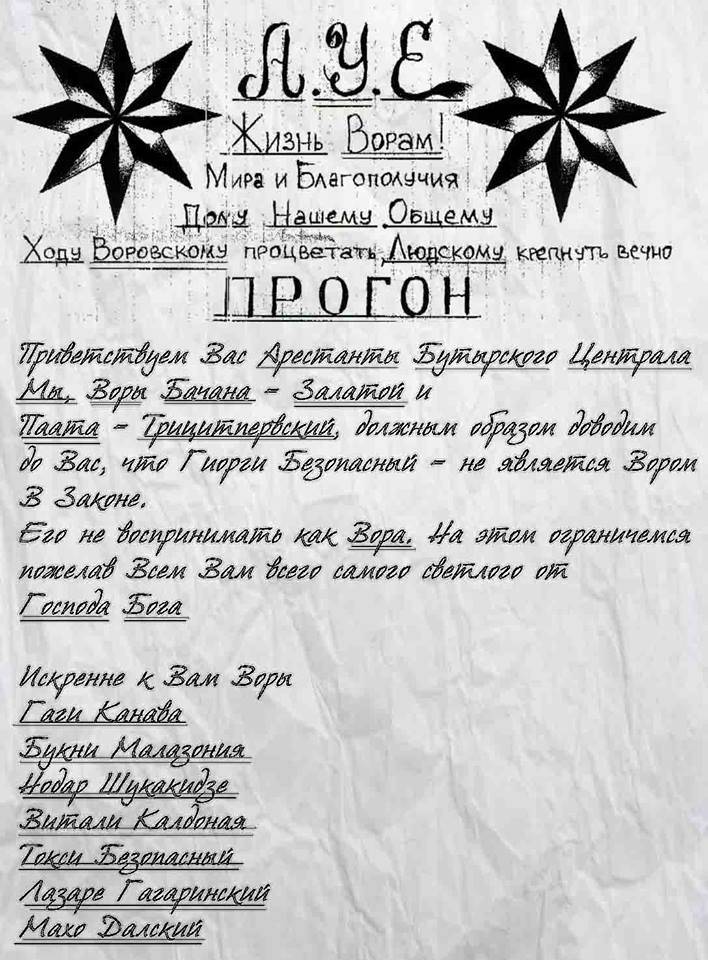 А.У.Е
Жизнь Ворам!
Мира и Благополучия
Дому Нашему Общему
Ходу Воровскому процветать, Людскому крепнуть вечно
ПРОГОН
Приветствуем Вас Арестанты Бутырского Централа
Мы, Воры Бачана - Залатой и
Паата - Трицитпервский, должным образом доводим
до Вас, что Гиорги Безопасный - не является Вором
В Законе.
Его не воспринимать как Вора. На этом ограничемся
пожелав Всем Вам всего самого светлого от
Господа Бога
Искренне к Вам Воры
Гаги Канава
Букни Малазония
Нодар Шукакидзе
Витали Калбоная
Токси Безопасный
Лазаре Гагаринский
Махо Далский